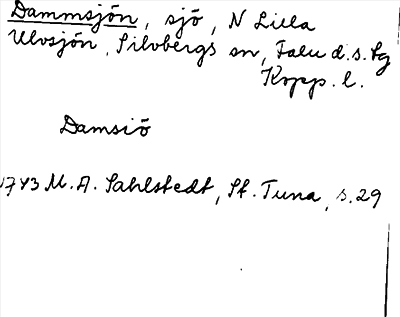 Dammsjön, sjö, N Lilla
Ulvsjön, Silvbergs sn, Falu d.s. lg
Kopp. l.
Damsiö
1743 M. A. Sahlstedt, St. Tuna, s. 29